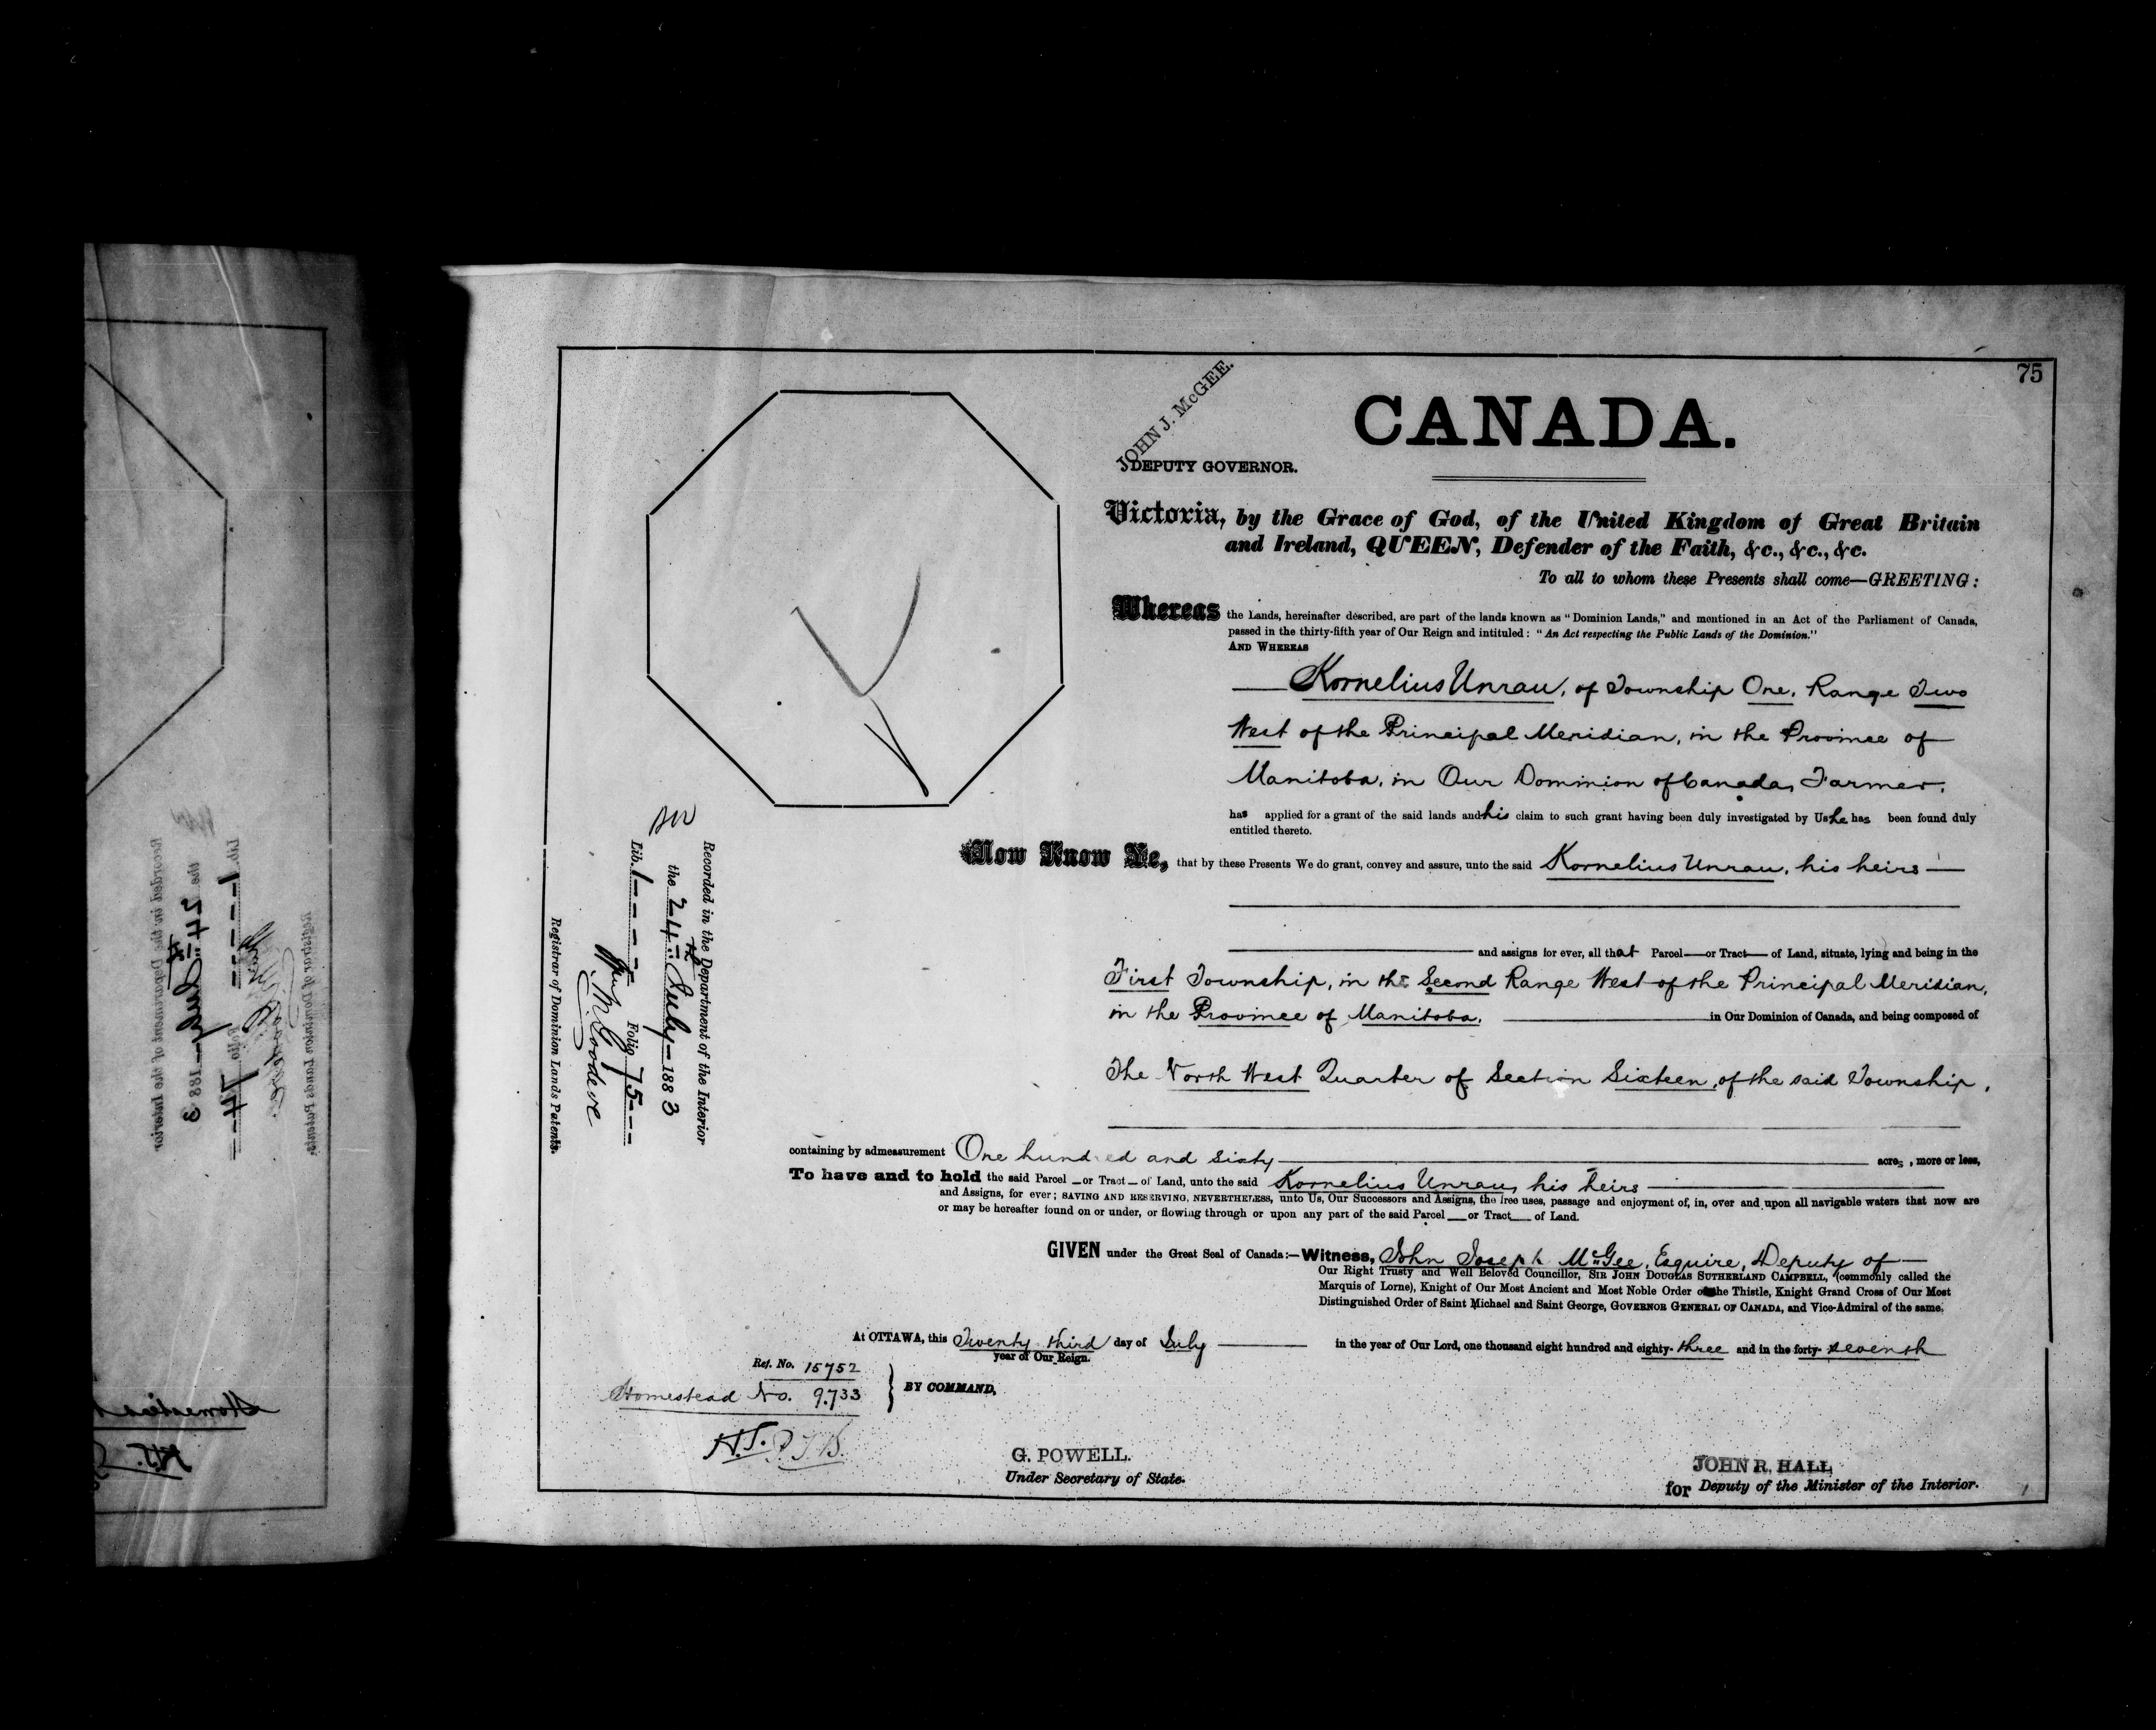 75
JOHN J. McGEE.
DEPUTY GOVERNOR.
CANADA.
Victoria, by the Grace of God, of the United Kingdom of Great Britain
and Ireland, QUEEN, Defender of the Faith, &c., &c., &c.
To all to whom these Presents shall come—GREETING:
Whereas the Lands, hereinafter described, are part of the lands known as "Dominion Lands," and mentioned in an Act of the Parliament of Canada,
passed in the thirty-fifth year of Our Reign and intituled: "An Act respecting the Public Lands of the Dominion."
AND WHEREAS
Kornelius Unrau, of Township One, Range Two
West of the Principal Meridian, in the Province of
Manitoba, in Our Dominion of Canada, Farmer,
has applied for a grant of the said lands and his claim to such grant having been duly investigated by Us he has been found duly
entitled thereto.
Now Know Ye, that by these Presents We do grant, convey and assure, unto the said Kornelius Unrau, his heirs —
and assigns for ever, all that Parcel — or Tract — of Land, situate, lying and being in the
First Township, in the Second Range West of the Principal Meridian,
in the Province of Manitoba, in Our Dominion of Canada, and being composed of
The North West Quarter of Section Sixteen, of the said Township,
containing by admeasurement One hundred and sixty acres, more or less,
To have and to hold the said Parcel — or Tract — of Land, unto the said Kornelius Unrau, his heirs
and Assigns, for ever; SAVING AND RESERVING, NEVERTHELESS, unto Us, Our Successors and Assigns, the free uses, passage and enjoyment of, in, over and upon all navigable waters that now are
or may be hereafter found on or under, or flowing through or upon any part of the said Parcel — or Tract — of Land.
GIVEN under the Great Seal of Canada:—Witness, John Joseph McGee, Esquire, Deputy of —
Our Right Trusty and Well Beloved Councillor, SIR JOHN DOUGLAS SUTHERLAND CAMPBELL, (commonly called the
Marquis of Lorne), Knight of Our Most Ancient and Most Noble Order of the Thistle, Knight Grand Cross of Our Most
Distinguished Order of Saint Michael and Saint George, GOVERNOR GENERAL OF CANADA, and Vice-Admiral of the same.
At OTTAWA, this Twenty third day of July — in the year of Our Lord, one thousand eight hundred and eighty-three and in the forty-seventh
year of Our Reign.
Ref. No. 15752
Homestead No. 9733
BY COMMAND,
H.J.
G. POWELL.
Under Secretary of State.
JOHN R. HALL
for Deputy of the Minister of the Interior.
Recorded in the Department of the Interior
the 24th July — 1883
Lib. 1 Folio 75
Wm M Goodeve
Registrar of Dominion Lands Patents.